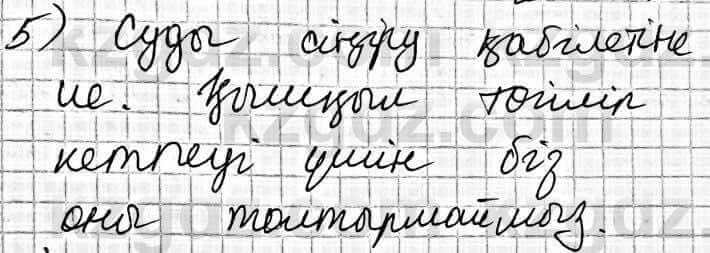 5) Суды сіңіру қабілетіне
ие. Қышқыл төгіліп
кетпеуі үшін біз
оны толтырмаймыз.